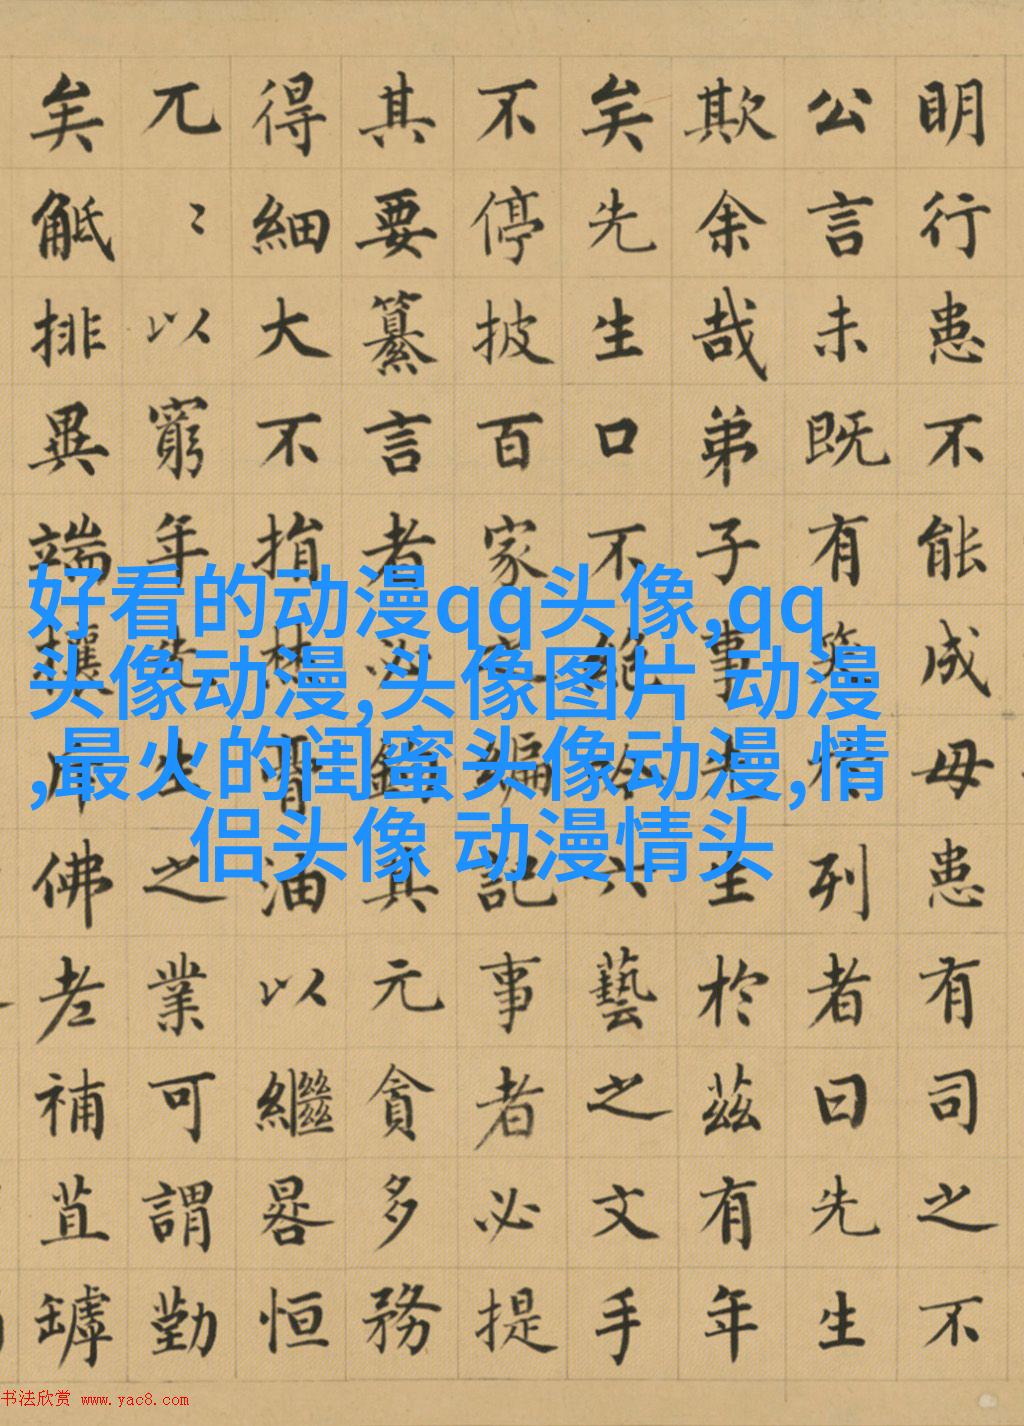 明行患不能成毋患有司之不
公言未既有笑於列者曰先生
欺余哉弟子事先生於茲有年
矣先生口不絶吟六藝之文手
不停披百家之編記事者必提
其要纂言者必鉤其元貪多務
得細大不捐焚膏油以繼晷恒
兀〻以窮年先生之業可謂勤
矣觝排異端攘斥佛老補苴罅
好看的动漫qq头像,qq
头像动漫,头像图片 动漫
,最火的闺蜜头像动漫,情
侣头像 动漫情头
书法欣赏 www.yac8.com